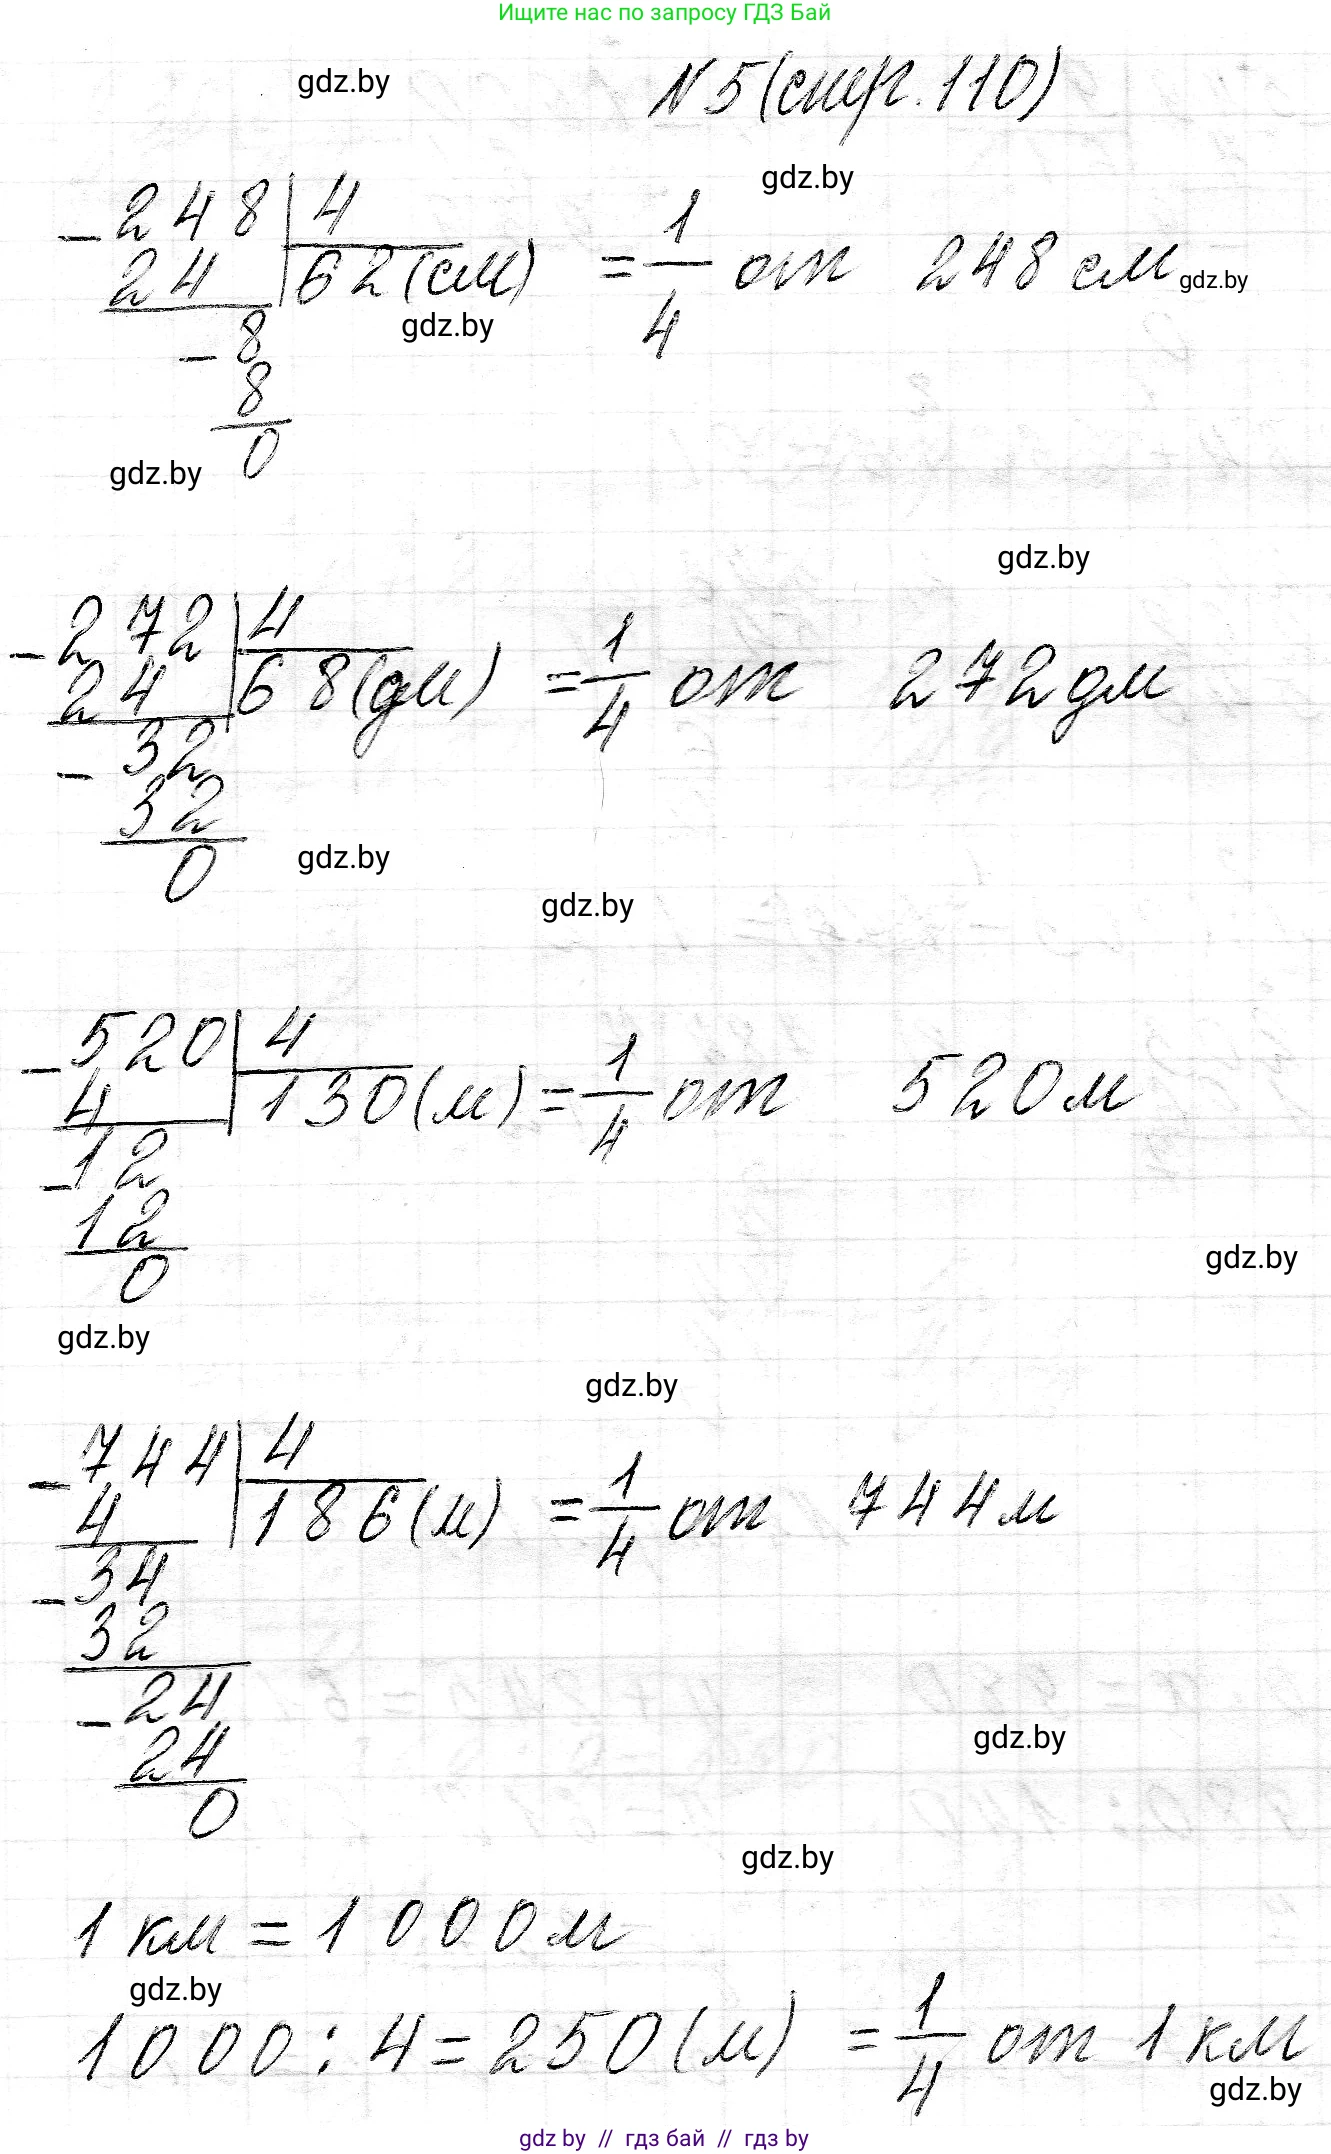 Ищите нас по запросу ГДЗ Бай
gdz.by
N 5 (стр. 110)
gdz.by
- 248 | 4
24 62 (см) = 1/4 от 248 см
gdz.by
gdz.by
- 8
8
0
gdz.by
gdz.by
- 272 | 4
24 68 (дм) = 1/4 от 272 дм
- 32
32
0
gdz.by
gdz.by
- 520 | 4
4 130 (м) = 1/4 от 520 м
- 12
12
0
gdz.by
gdz.by
gdz.by
- 744 | 4
4 186 (м) = 1/4 от 744 м
- 34
32
- 24
24
0
gdz.by
gdz.by
1 км = 1000 м
gdz.by
1000 : 4 = 250 (м) = 1/4 от 1 км
gdz.by
gdz by // гдз бай // гдз by